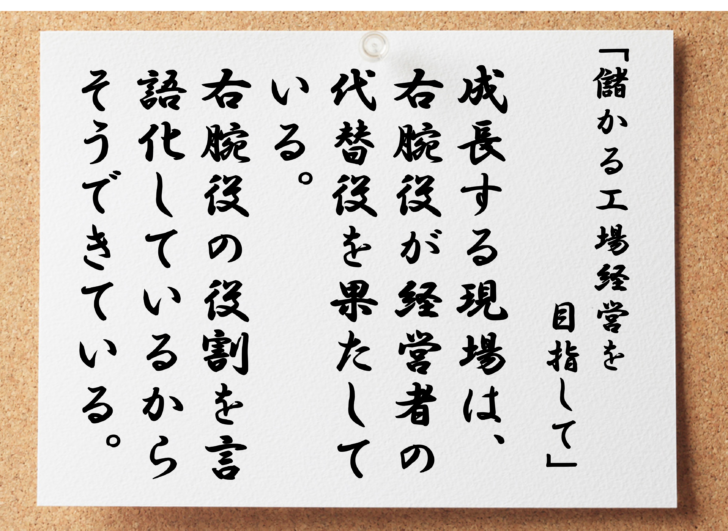 「儲かる工場経営を
目指して」
成長する現場は、
右腕役が経営者の
代替役を果たして
いる。
右腕役の役割を言
語化しているから
そうできている。